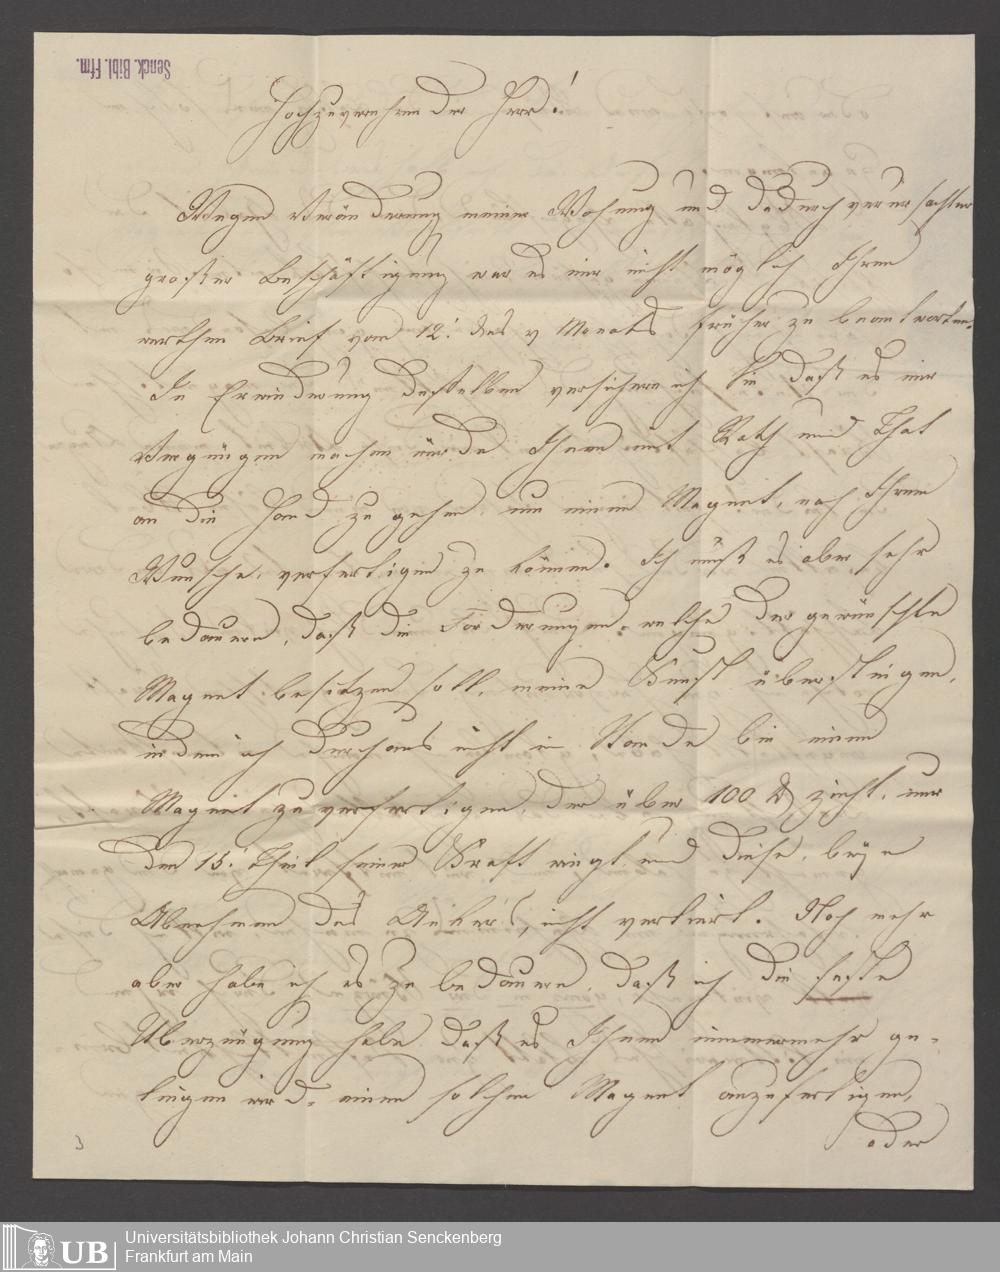 Senck. Bibl. Ffm.
Hochzuverehrender Herr!
Wegen Veränderung meiner Wohnung und dadurch verursachter
großer Beschäftigung war es mir nicht möglich Ihren
werthen Brief vom 12. des v Monats früher zu beantworten.
In Erwiederung desselben versichere ich Sie, daß es mir
Vergnügen machen würde Ihnen mit Rath und That
an die Hand zu gehen, um einen Magnet, nach Ihrem
Wunsche, verfertigen zu können. Ich muß es aber sehr
bedauern, daß die Forderungen, welche der gewünschte
Magnet besitzen soll, meine Kunst übersteigen,
indem ich durchaus nicht im Stande bin einen
Magnet zu verfertigen, der über 100 ℔ zieht, nur
den 15. Theil seiner Kraft wiegt und diese, beym
Abnehmen des Ankers, nicht verliert. Noch mehr
aber habe ich es zu bedauern, daß ich die feste
Überzeugung habe daß es Ihnen nimmermehr ge-
lingen wird, einen solchen Magnet anzufertigen,
oder
3
UB Universitätsbibliothek Johann Christian Senckenberg
Frankfurt am Main